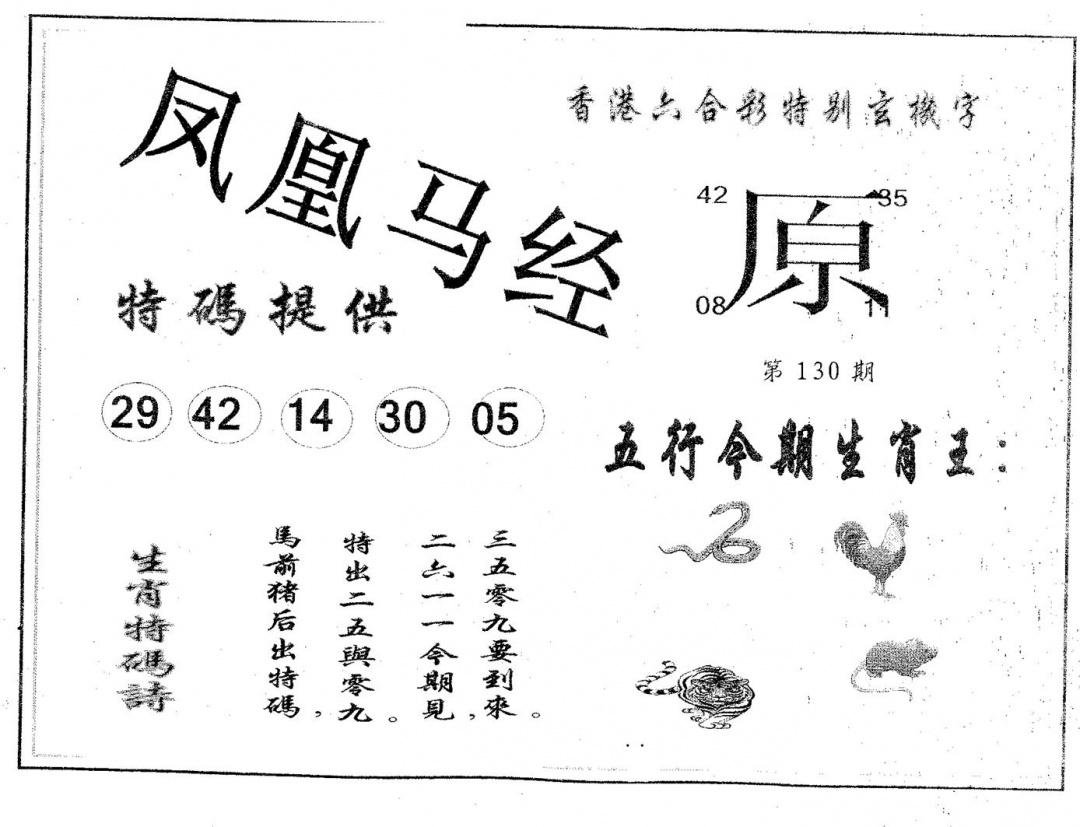 凤凰马经
香港六合彩特别玄機字
42 35
原
08 11
第 130 期
特碼提供
29 42 14 30 05
五行今期生肖王：
生肖特碼詩
馬前猪后出特碼，
特出二五與零九。
二六一一今期見，
三五零九要到來。